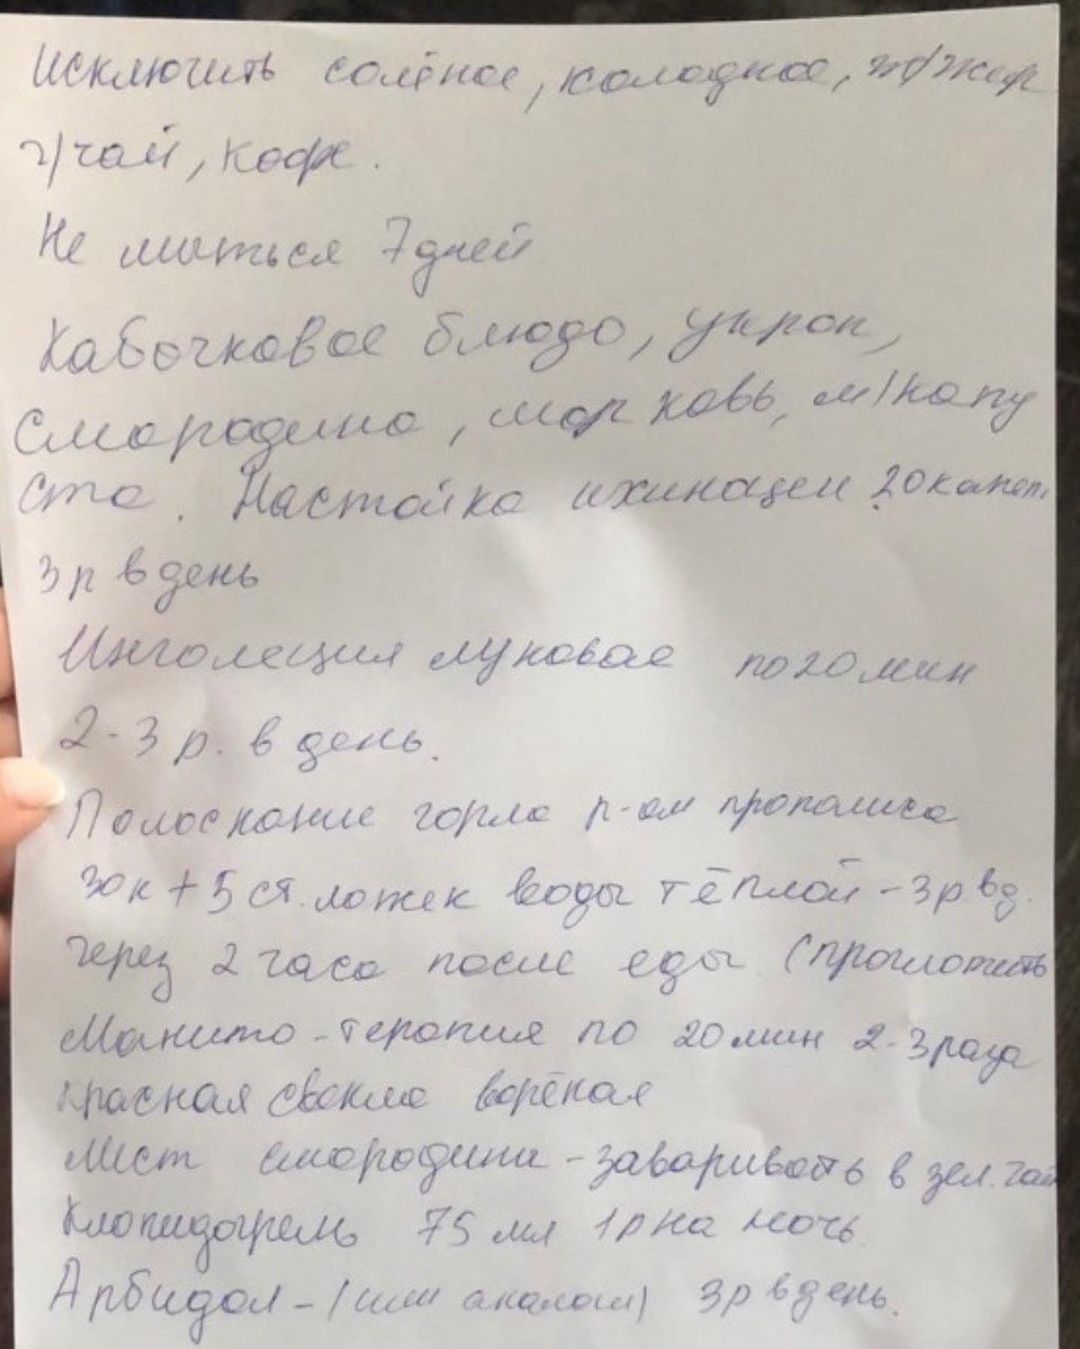 Исключить солёное, холодное, ж/жир
ч/чай, кофе.
Не мыться 7 дней
Кабочковое блюдо, укроп,
Смородина, морковь, м/капу
ста. Настойка ихинацеи 20 капель
3 р в день
Инголеция луковае по 20 мин
2-3 р. в день.
Полоскание горла р-ом прополиса
30 к + 5 ст. ложек воды тёплой - 3 р в д.
Через 2 часа после еды (проглотить
Манито-терапия по 20 мин 2-3 раза
Красная свекла варёная
Лист смородини - заваривать в зел. чай
Клопидогрель 75 мл 1 р на ночь
Арбидол - (или аналоги) 3 р в день.